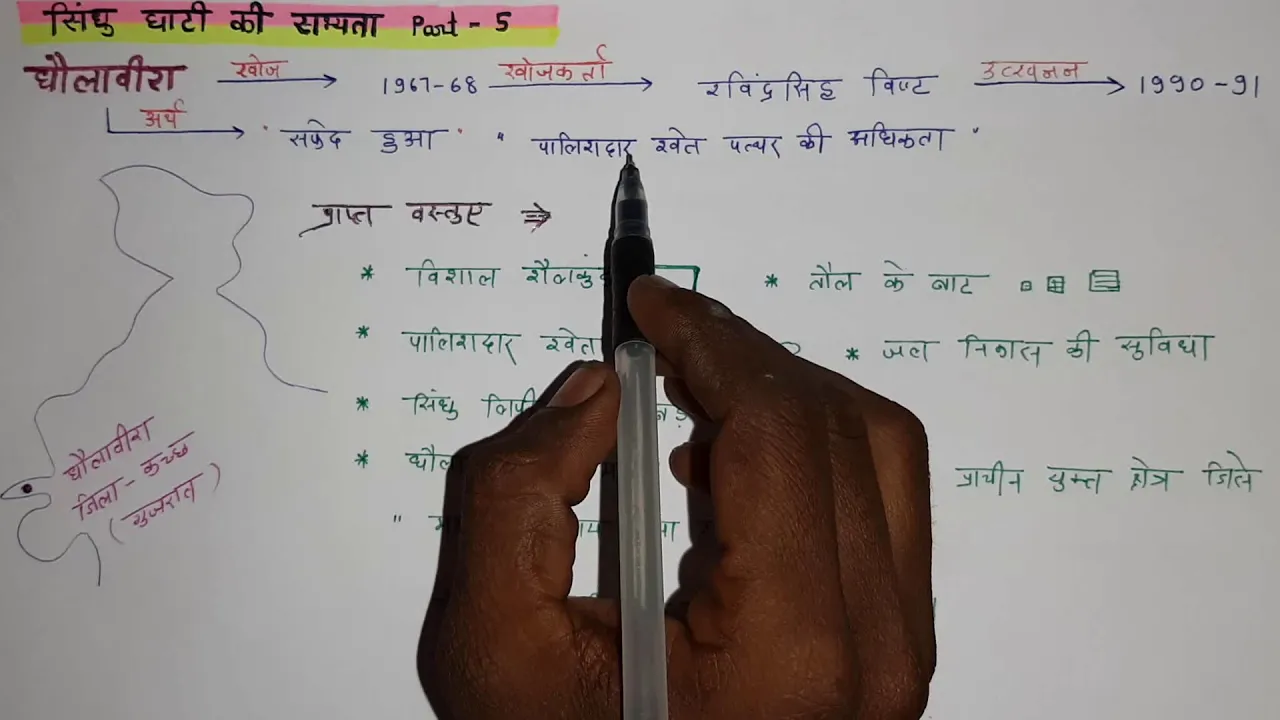 सिंधु घाटी की सभ्यता Part - 5
धौलावीरा खोज 1967-68 खोजकर्ता रविंद्रसिह विष्ट उत्खनन 1990-91
अर्थ " सफेद कुआ " " पालिशदार श्वेत पत्थर की अधिकता "
प्राप्त वस्तुए ⇒
* विशाल शैलकुं * तौल के बाट
* पालिशदार श्वेत * जल निकास की सुविधा
* सिंधु लिपी
* धौला प्राचीन युक्त क्षेत्र जिसे
धौलावीरा
जिला - कच्छ
( गुजरात )